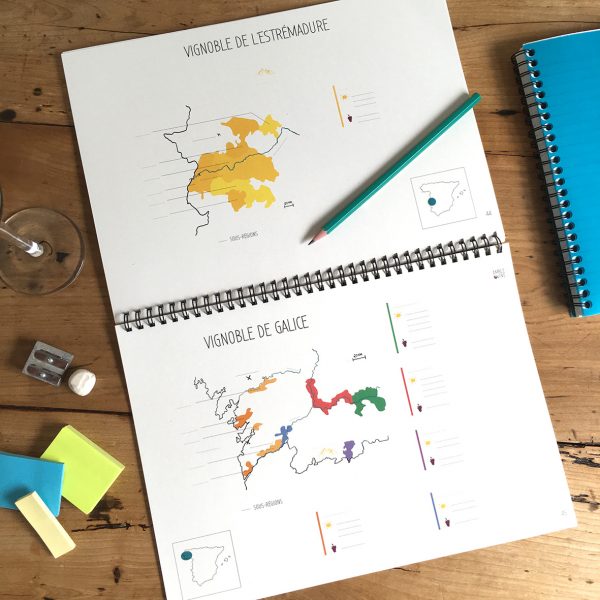 VIGNOBLE DE L'ESTRÉMADURE
SOUS-RÉGIONS
VIGNOBLE DE GALICE
SOUS-RÉGIONS